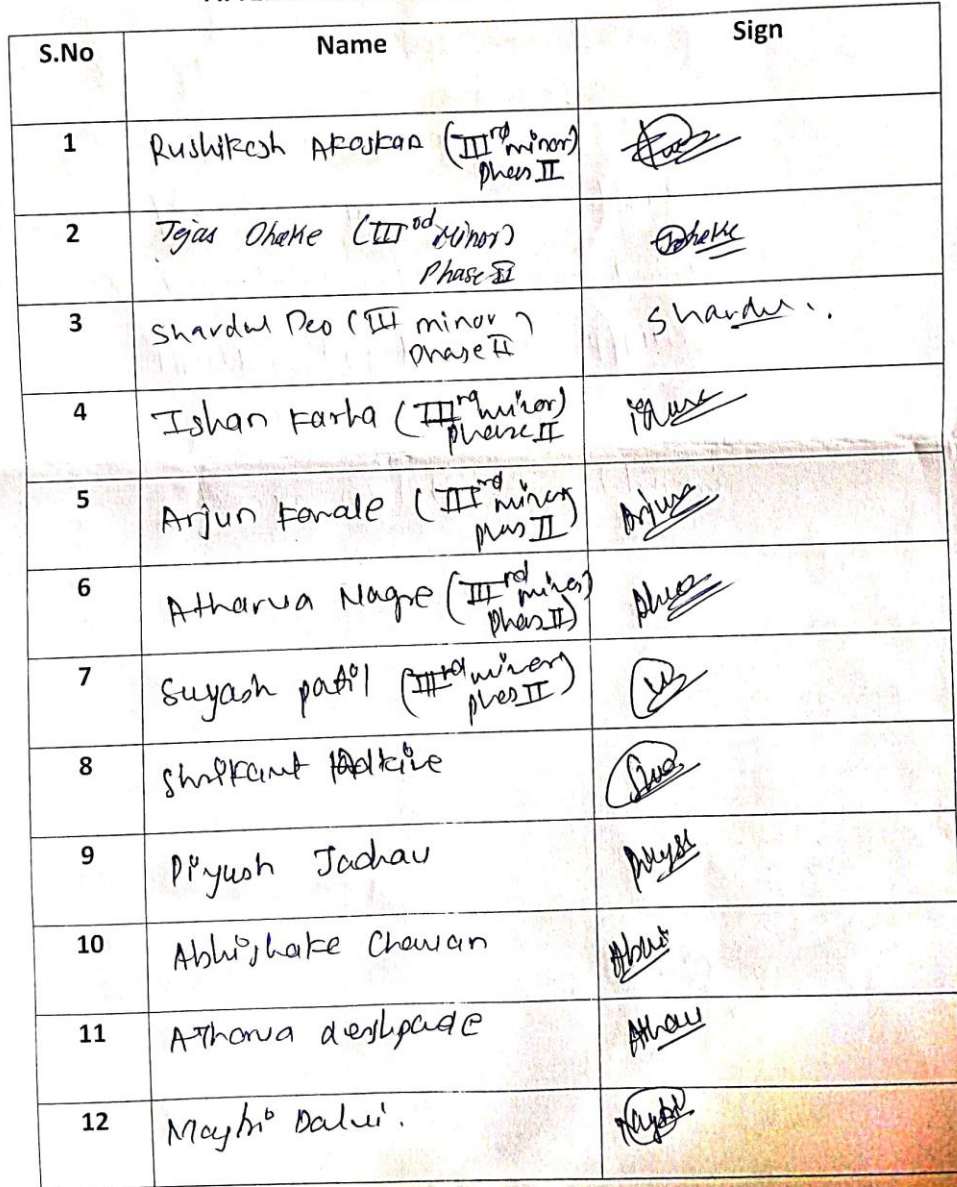 S.No Name Sign
1 Rushikesh Akoskar (IIIrd minor)
phas II
2 Tejas Dhake (IIIrd Minor) Dhake
Phase II
3 Shardul Deo (III minor) Shardul.
phase II
4 Ishan Karha (IIIrd minor)
phase II
5 Arjun Kanale (IIIrd minor) Arjun
phas II
6 Atharva Nagre (IIIrd minor)
phas II)
7 Suyash patil (IIIrd minor)
phes II
8 Shrikant
9 Piyush Jadhav Piyush
10 Abhishake Chavan Abhi
11 Atharva deshpade Athav
12 Maybi Dalvi.